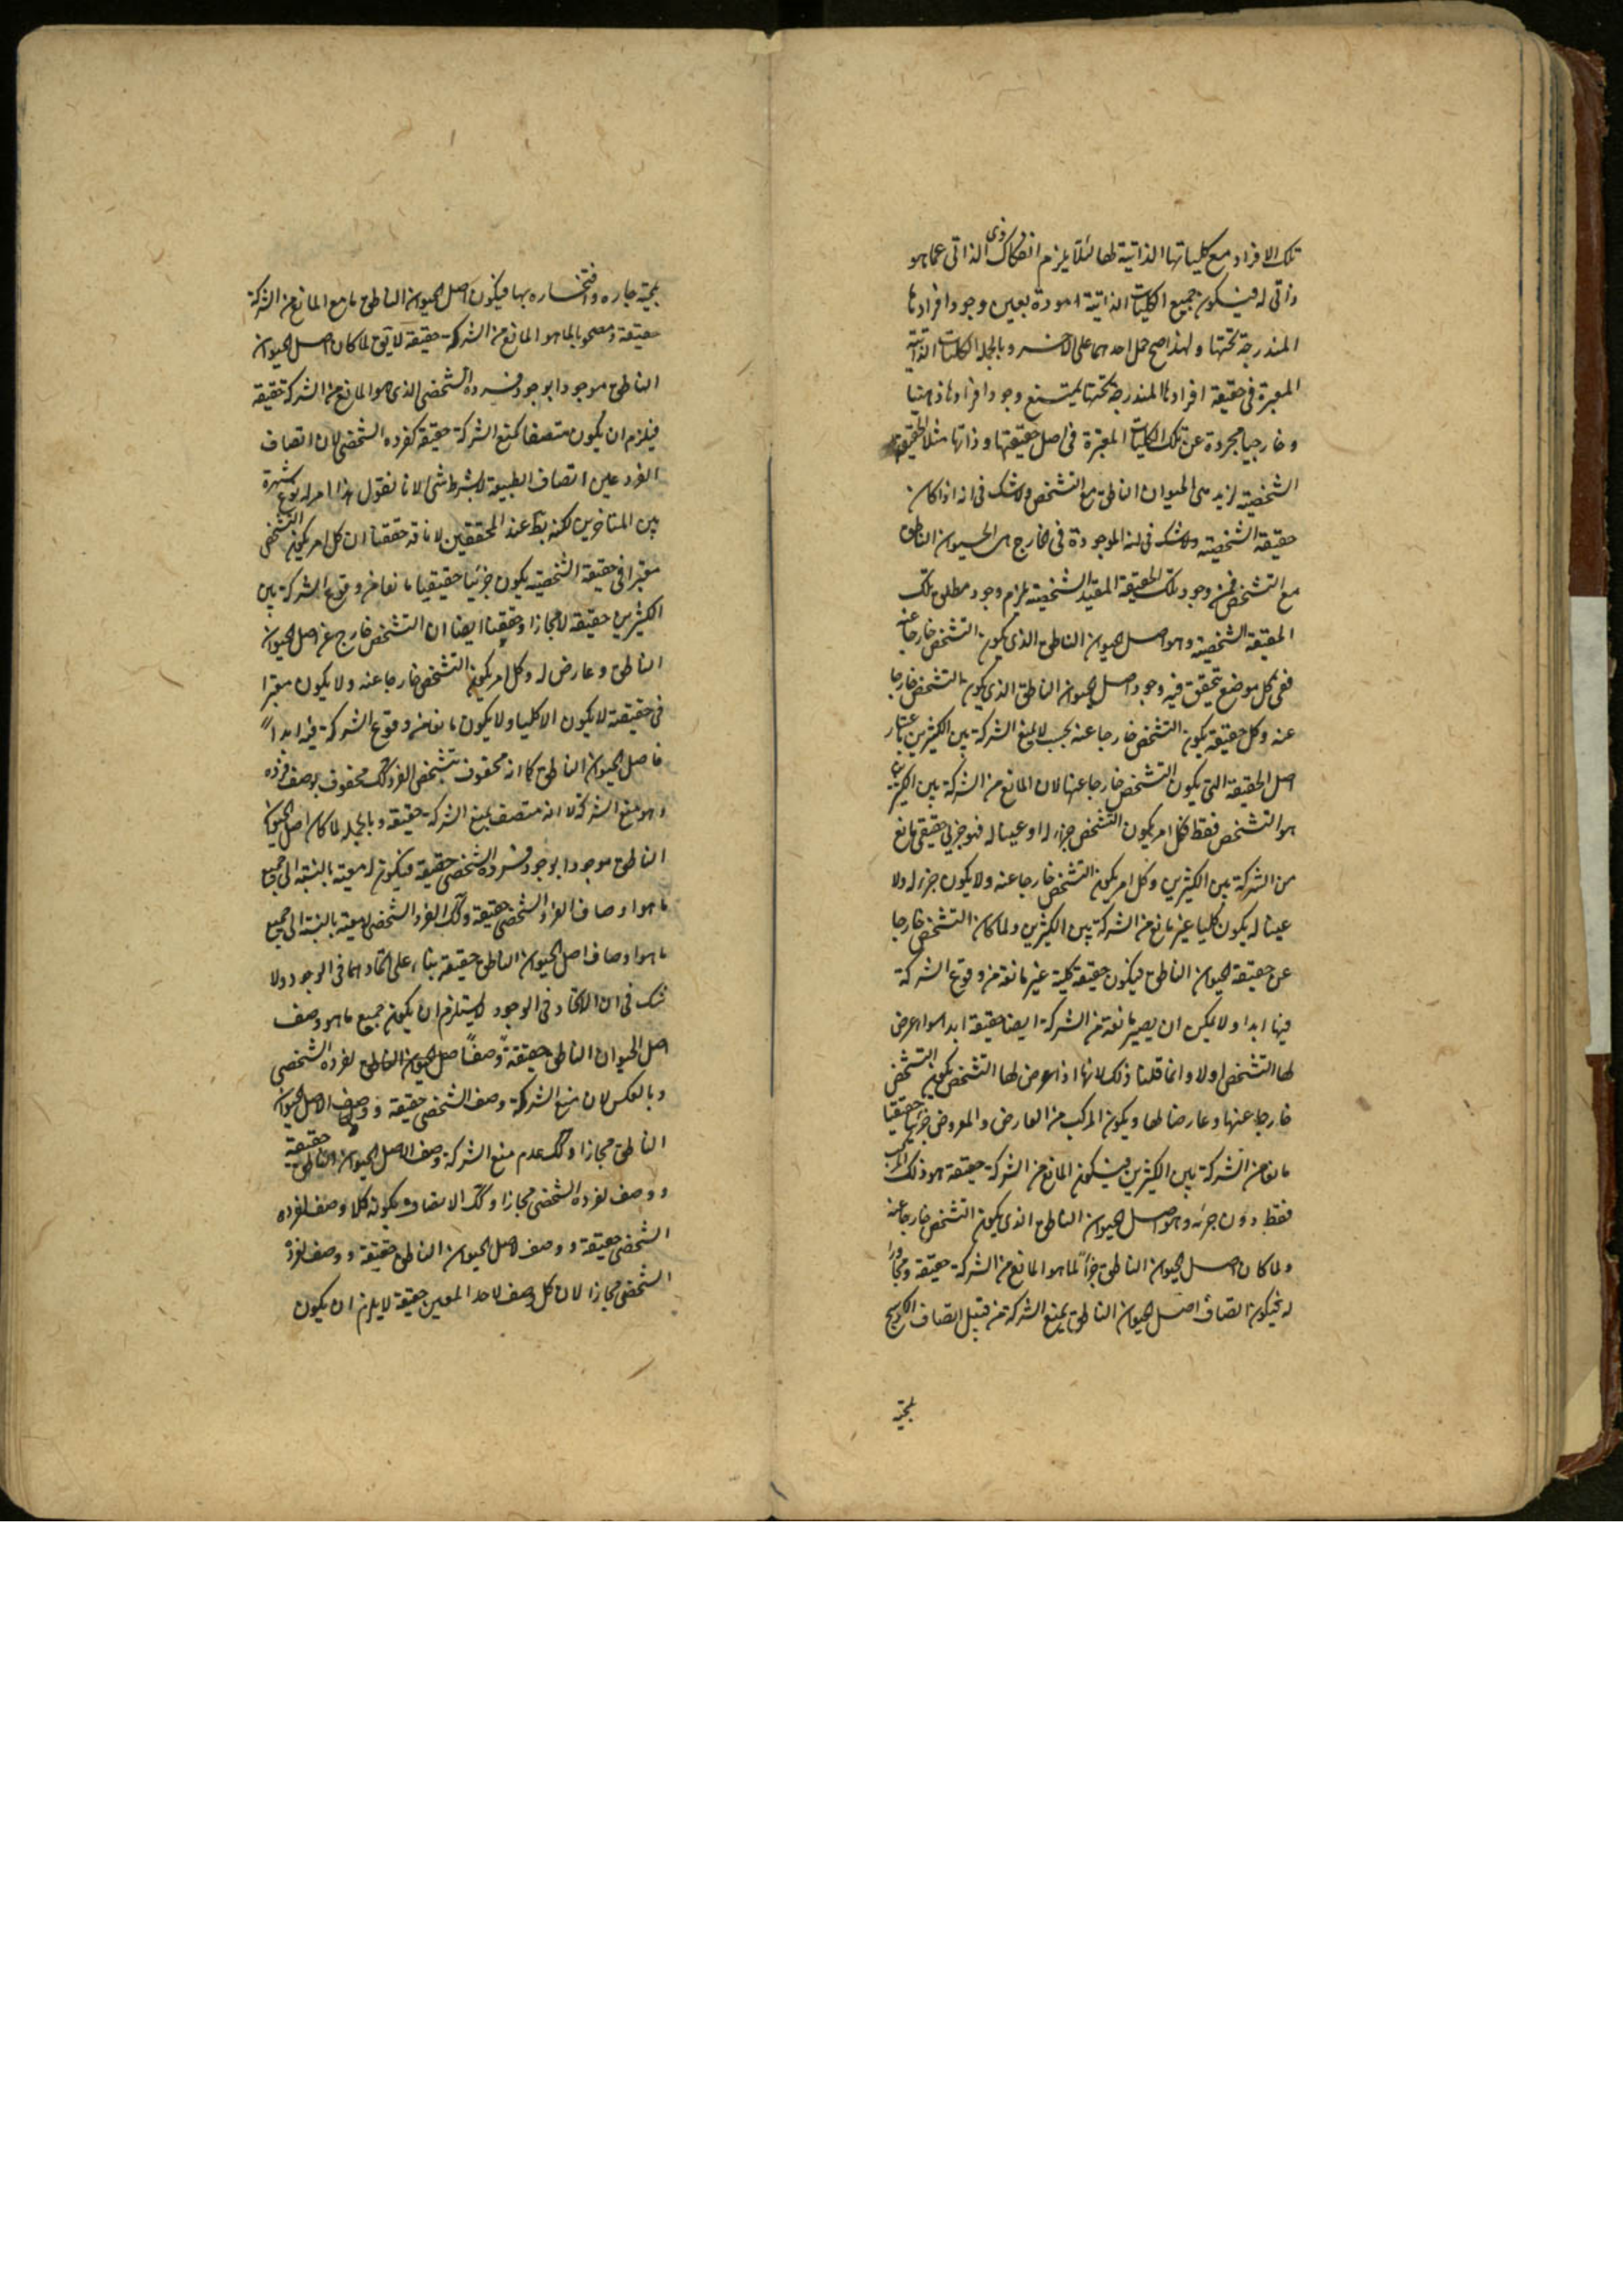 تلك الافراد مع كلياتها الذاتية لها لئلا يلزم انفكاك الذاتى عما هو
ذاتى له فيكون جميع الكليات الذاتية موجودة بعين وجود افرادها
المندرجة تحتها ولهذا صح حمل احدهما على الاخر وبالجملة الكليات الذاتية
المعتبرة فى حقيقة افرادها المندرجة تحتها يمتنع وجود افرادها ذهنيا
وخارجيا مجردة عن تلك الكليات المعتبرة فى اصل حقيقتها وذاتها مثلا الحقيقة
الشخصية لزيد هى الحيوان الناطق مع التشخص ولا شك فى انه اذا كان
حقيقة الشخصية ولا شك فى انه الموجودة فى الخارج هى الحيوان الناطق
مع التشخص فمن وجود تلك الحقيقة المقيد الشخصية يلزم وجود مطلق تلك
الحقيقة الشخصية وهو اصل الحيوان الناطق الذى يكون التشخص خارجا عنه
ففى كل موضع يتحقق فيه وجود اصل الحيوان الناطق الذى يكون التشخص خارجا
عنه وكل حقيقة يكون التشخص خارجا عنه يجب لا يمنع الشركة بين الكثيرين باعتبار
اصل الحقيقة التى يكون التشخص خارجا عنها لان المانع من الشركة بين الكثيرين
هو التشخص فقط فكل امر يكون التشخص جزء له او عينا له فهو جزئى حقيقى مانع
من الشركة بين الكثيرين وكل امر يكون التشخص خارجا عنه ولا يكون جزء له ولا
عينا له يكون كليا غير مانع من الشركة بين الكثيرين ولما كان التشخص خارجا
عن حقيقة الحيوان الناطق فيكون حقيقة كلية غير مانعة من وقوع الشركة
فيها ابدا ولا يمكن ان يصير مانعة من الشركة ايضا حقيقة ابدا سواء عرض
لها التشخص اولا وانما قلنا ذلك لانها اذا عرض لها التشخص يكون التشخص
خارجا عنها وعارضا لها ويكون المركب من العارض والمعروض جزئيا حقيقيا
مانعا من الشركة بين الكثيرين فيكون المانع من الشركة حقيقة هو ذلك المركب
فقط دون جزئه وهو اصل الحيوان الناطق الذى يكون التشخص خارجا عنه
ولما كان اصل الحيوان الناطق جزأ لما هو المانع من الشركة حقيقة ومجاورا
له فيكون اتصاف اصل الحيوان الناطق بمنع الشركة من قبيل اتصاف
بجبة جاره وافتخاره بها فيكون اصل الحيوان الناطق ما مع المانع من الشركة
حقيقة ومصحوبا لما هو المانع من الشركة حقيقة لا يقال لما كان اصل الحيوان
الناطق موجودا بوجود فرده الشخصى الذى هو المانع من الشركة حقيقة
فيلزم ان يكون متصفا بمنع الشركة حقيقة كفرده الشخصى لان اتصاف
الفرد عين اتصاف الطبيعة لا بشرط شئ لانا نقول هذا امر له نوع شهرة
بين المتاخرين لكنه بط عند المحققين لانا قد حققنا ان كل امر يكون التشخص
معتبرا فى حقيقة الشخصية يكون جزئيا حقيقيا مانعا من وقوع الشركة بين
الكثيرين حقيقة لا مجازا وحققنا ايضا ان التشخص خارج عن اصل الحيوان
الناطق وعارض له وكل امر يكون التشخص خارجا عنه ولا يكون معتبرا
فى حقيقته لا يكون الا كليا ولا يكون مانعا من وقوع الشركة فيه ابدا
فاصل الحيوان الناطق كما انه محفوف بتشخص الفرد كك محفوف بوصف فرده
وهو منع الشركة لا انه متصف بمنع الشركة حقيقة وبالجملة لما كان اصل الحيوان
الناطق موجودا بوجود فرده الشخصى حقيقة فيكون له معية بالنسبة الى جميع
ما هو اوصاف الفرد الشخصى حقيقة وكك الفرد الشخصى له معية بالنسبة الى جميع
ما هو اوصاف اصل الحيوان الناطق حقيقة بناء على اتحادهما فى الوجود ولا
شك فى ان الاتحاد فى الوجود لا يستلزم ان يكون جميع ما هو وصف
اصل الحيوان الناطق حقيقة وصفا اصل الحيوان الناطق لفرده الشخصى
وبالعكس لان منع الشركة وصف الشخصى حقيقة ووصف لاصل الحيوان
الناطق مجازا وكك عدم منع الشركة وصف لاصل الحيوان الناطق حقيقة
ووصف لفرده الشخصى مجازا وكك الاتصاف بكونه كلا وصف لفرده
الشخصى حقيقة ووصف لاصل الحيوان الناطق حقيقة ووصف لفرده
الشخصى مجازا لان كل وصف لاحد المعين حقيقة لا يلزم ان يكون